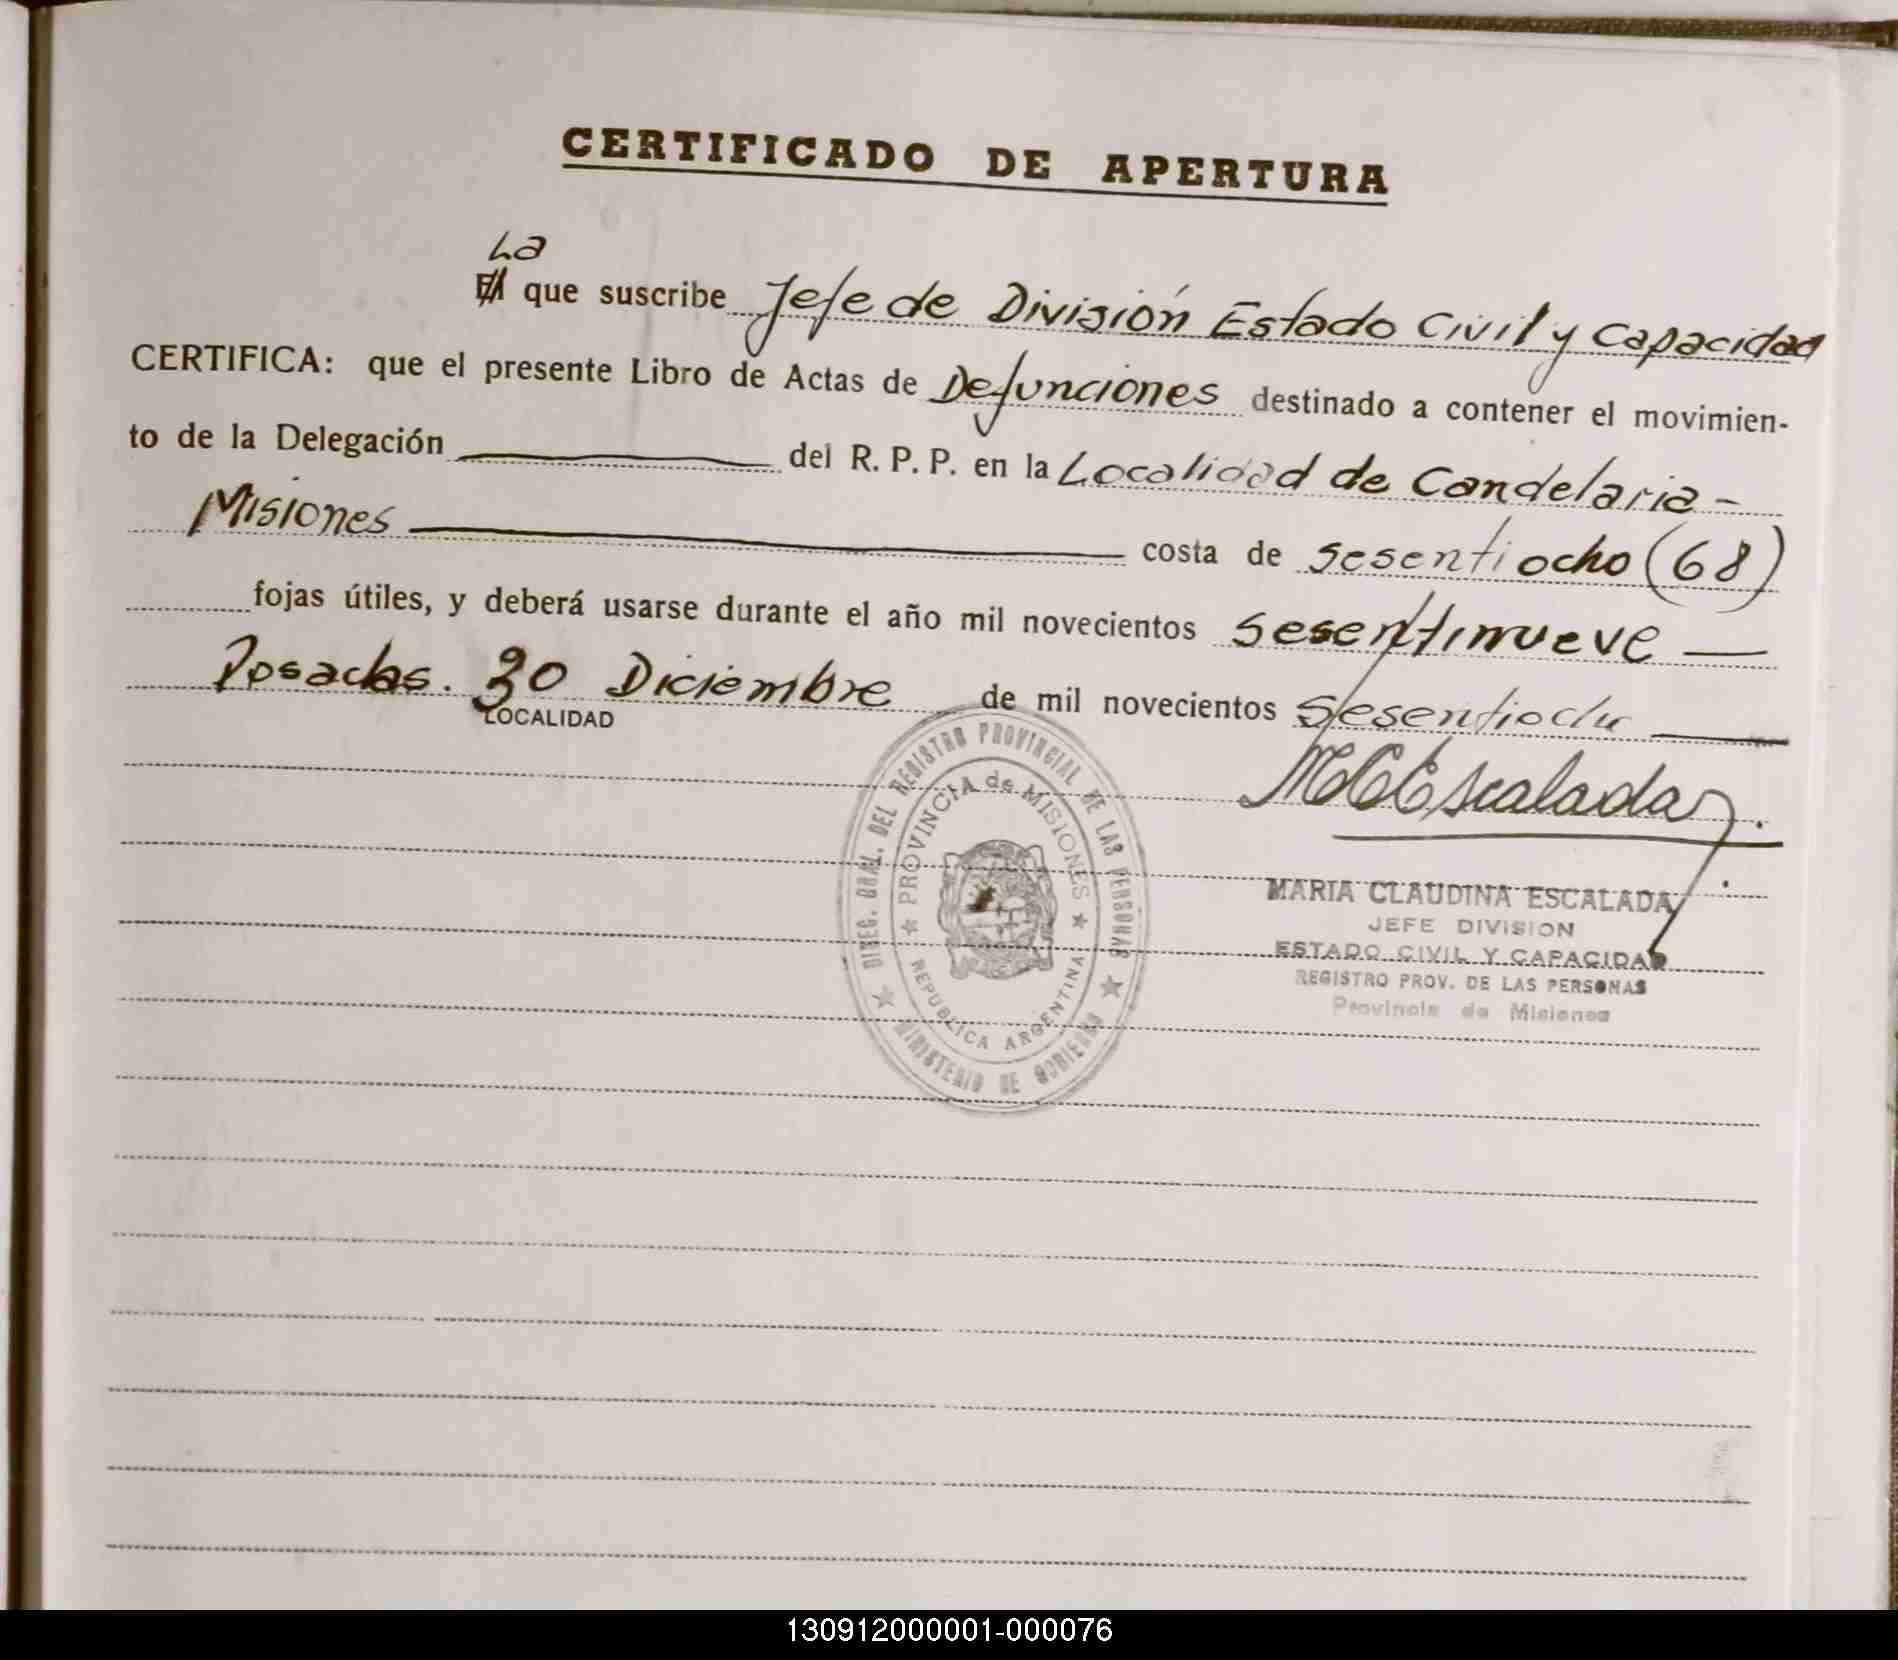 CERTIFICADO DE APERTURA
La
El que suscribe Jefe de División Estado Civil y Capacidad
CERTIFICA: que el presente Libro de Actas de Defunciones destinado a contener el movimien-
to de la Delegación del R. P. P. en la Localidad de Candelaria -
Misiones costa de sesentiocho (68)
fojas útiles, y deberá usarse durante el año mil novecientos sesentinueve
Posadas. 30 Diciembre de mil novecientos sesentiocho
LOCALIDAD
MCEscalada.
DIREC. GRAL. DEL REGISTRO PROVINCIAL DE LAS PERSONAS
PROVINCIA de MISIONES
REPUBLICA ARGENTINA
MINISTERIO DE GOBIERNO
MARIA CLAUDINA ESCALADA
JEFE DIVISION
ESTADO CIVIL Y CAPACIDAD
REGISTRO PROV. DE LAS PERSONAS
Provincia de Misiones
130912000001-000076